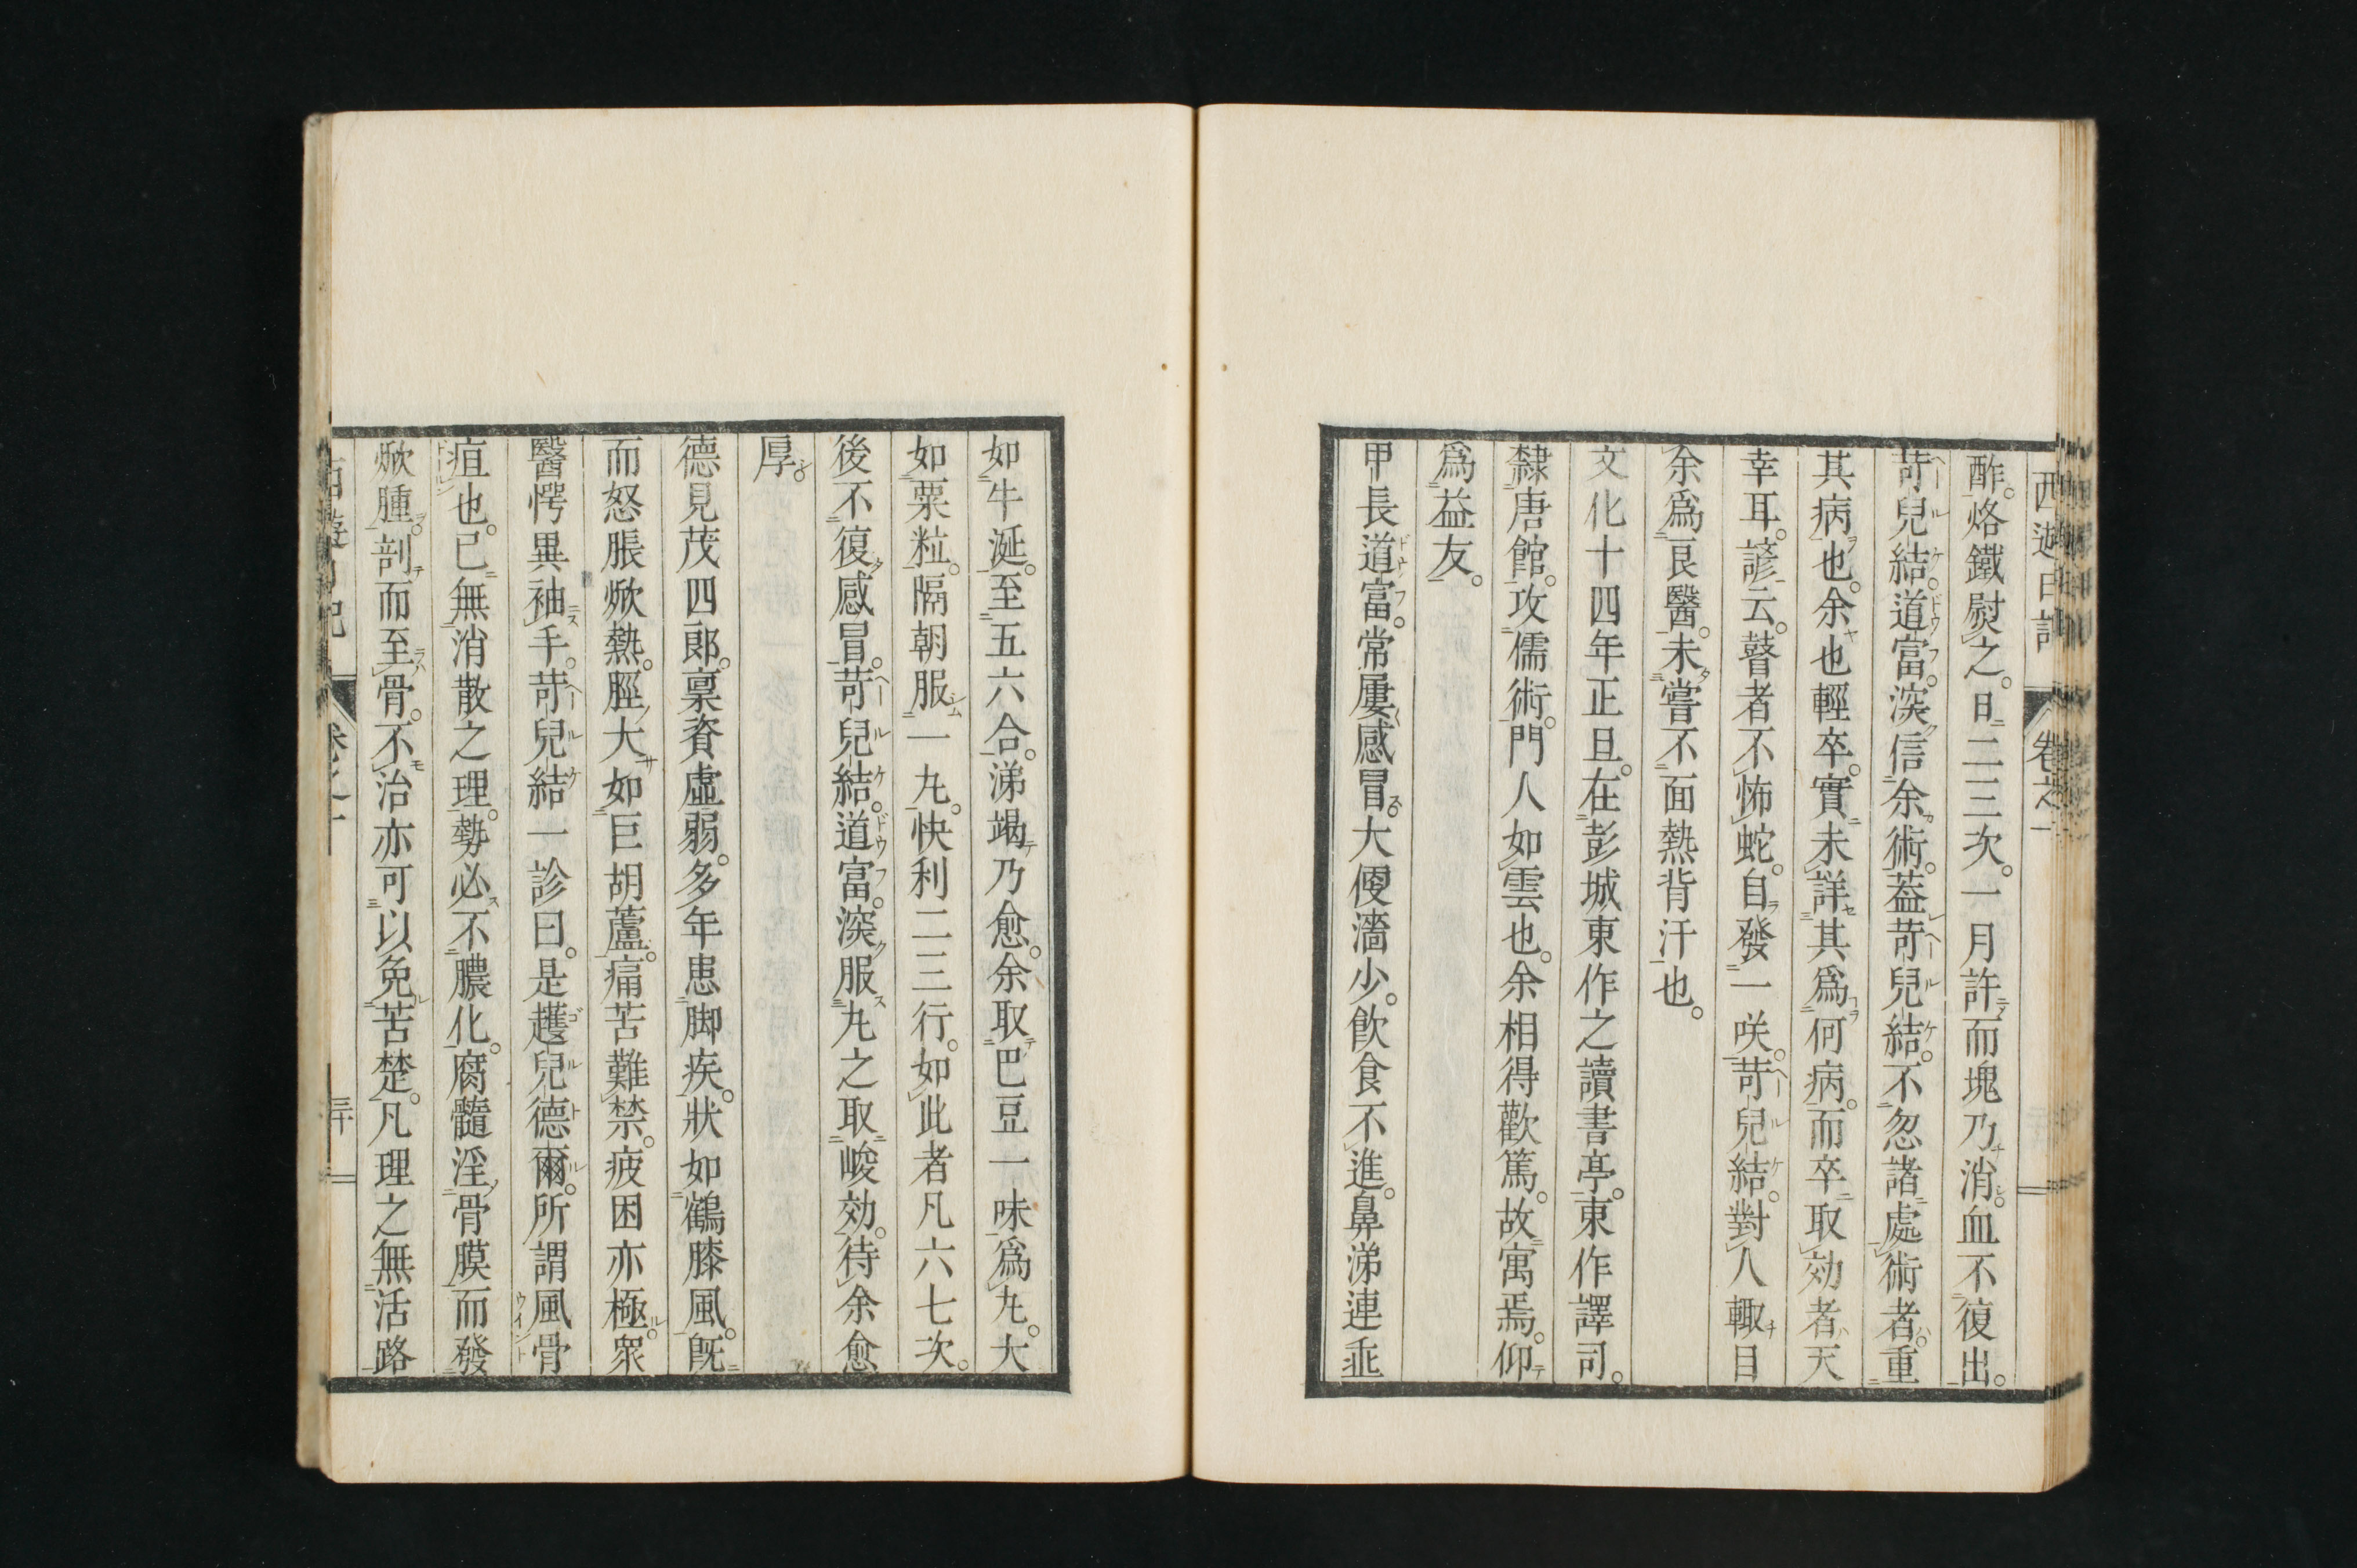 西遊日記 卷之一
酢。烙鐵熨之。日二三次。一月許而塊乃消。血不復出。
苛兒結。道富。深信余術。蓋苛兒結。不忽諸處術者。重
其病也。余也輕卒。實未詳其爲何病。而卒取効者天
幸耳。諺云。瞽者不怖蛇。自發一咲。苛兒結。對人輙目
余爲良醫。未嘗不面熱背汗也。
文化十四年正旦。在彭城東作之讀書亭。東作譯司。
隸唐館。攻儒術。門人如雲也。余相得歡篤。故寓焉。仰
爲益友。
甲長道富。常屢感冒。大便濇少。飮食不進。鼻涕連垂
如牛涎。至五六合。涕竭乃愈。余取巴豆一味爲丸。大
如粟粒。隔朝服一丸。快利二三行。如此者凡六七次。
後不復感冒。苛兒結。道富。深服丸之取峻効。待余愈
厚。
德見茂四郎。稟資虛弱。多年患脚疾。狀如鶴膝風。既
而怒脹焮熱。脛大如巨胡蘆。痛苦難禁。疲困亦極。衆
醫愕異袖手。苛兒結一診曰。是韄兒德爾。所謂風骨
疽也。已無消散之理。勢必不膿化。腐髓淫骨膜而發
焮腫。剖而至骨。不治亦可以免苦楚。凡理之無活路